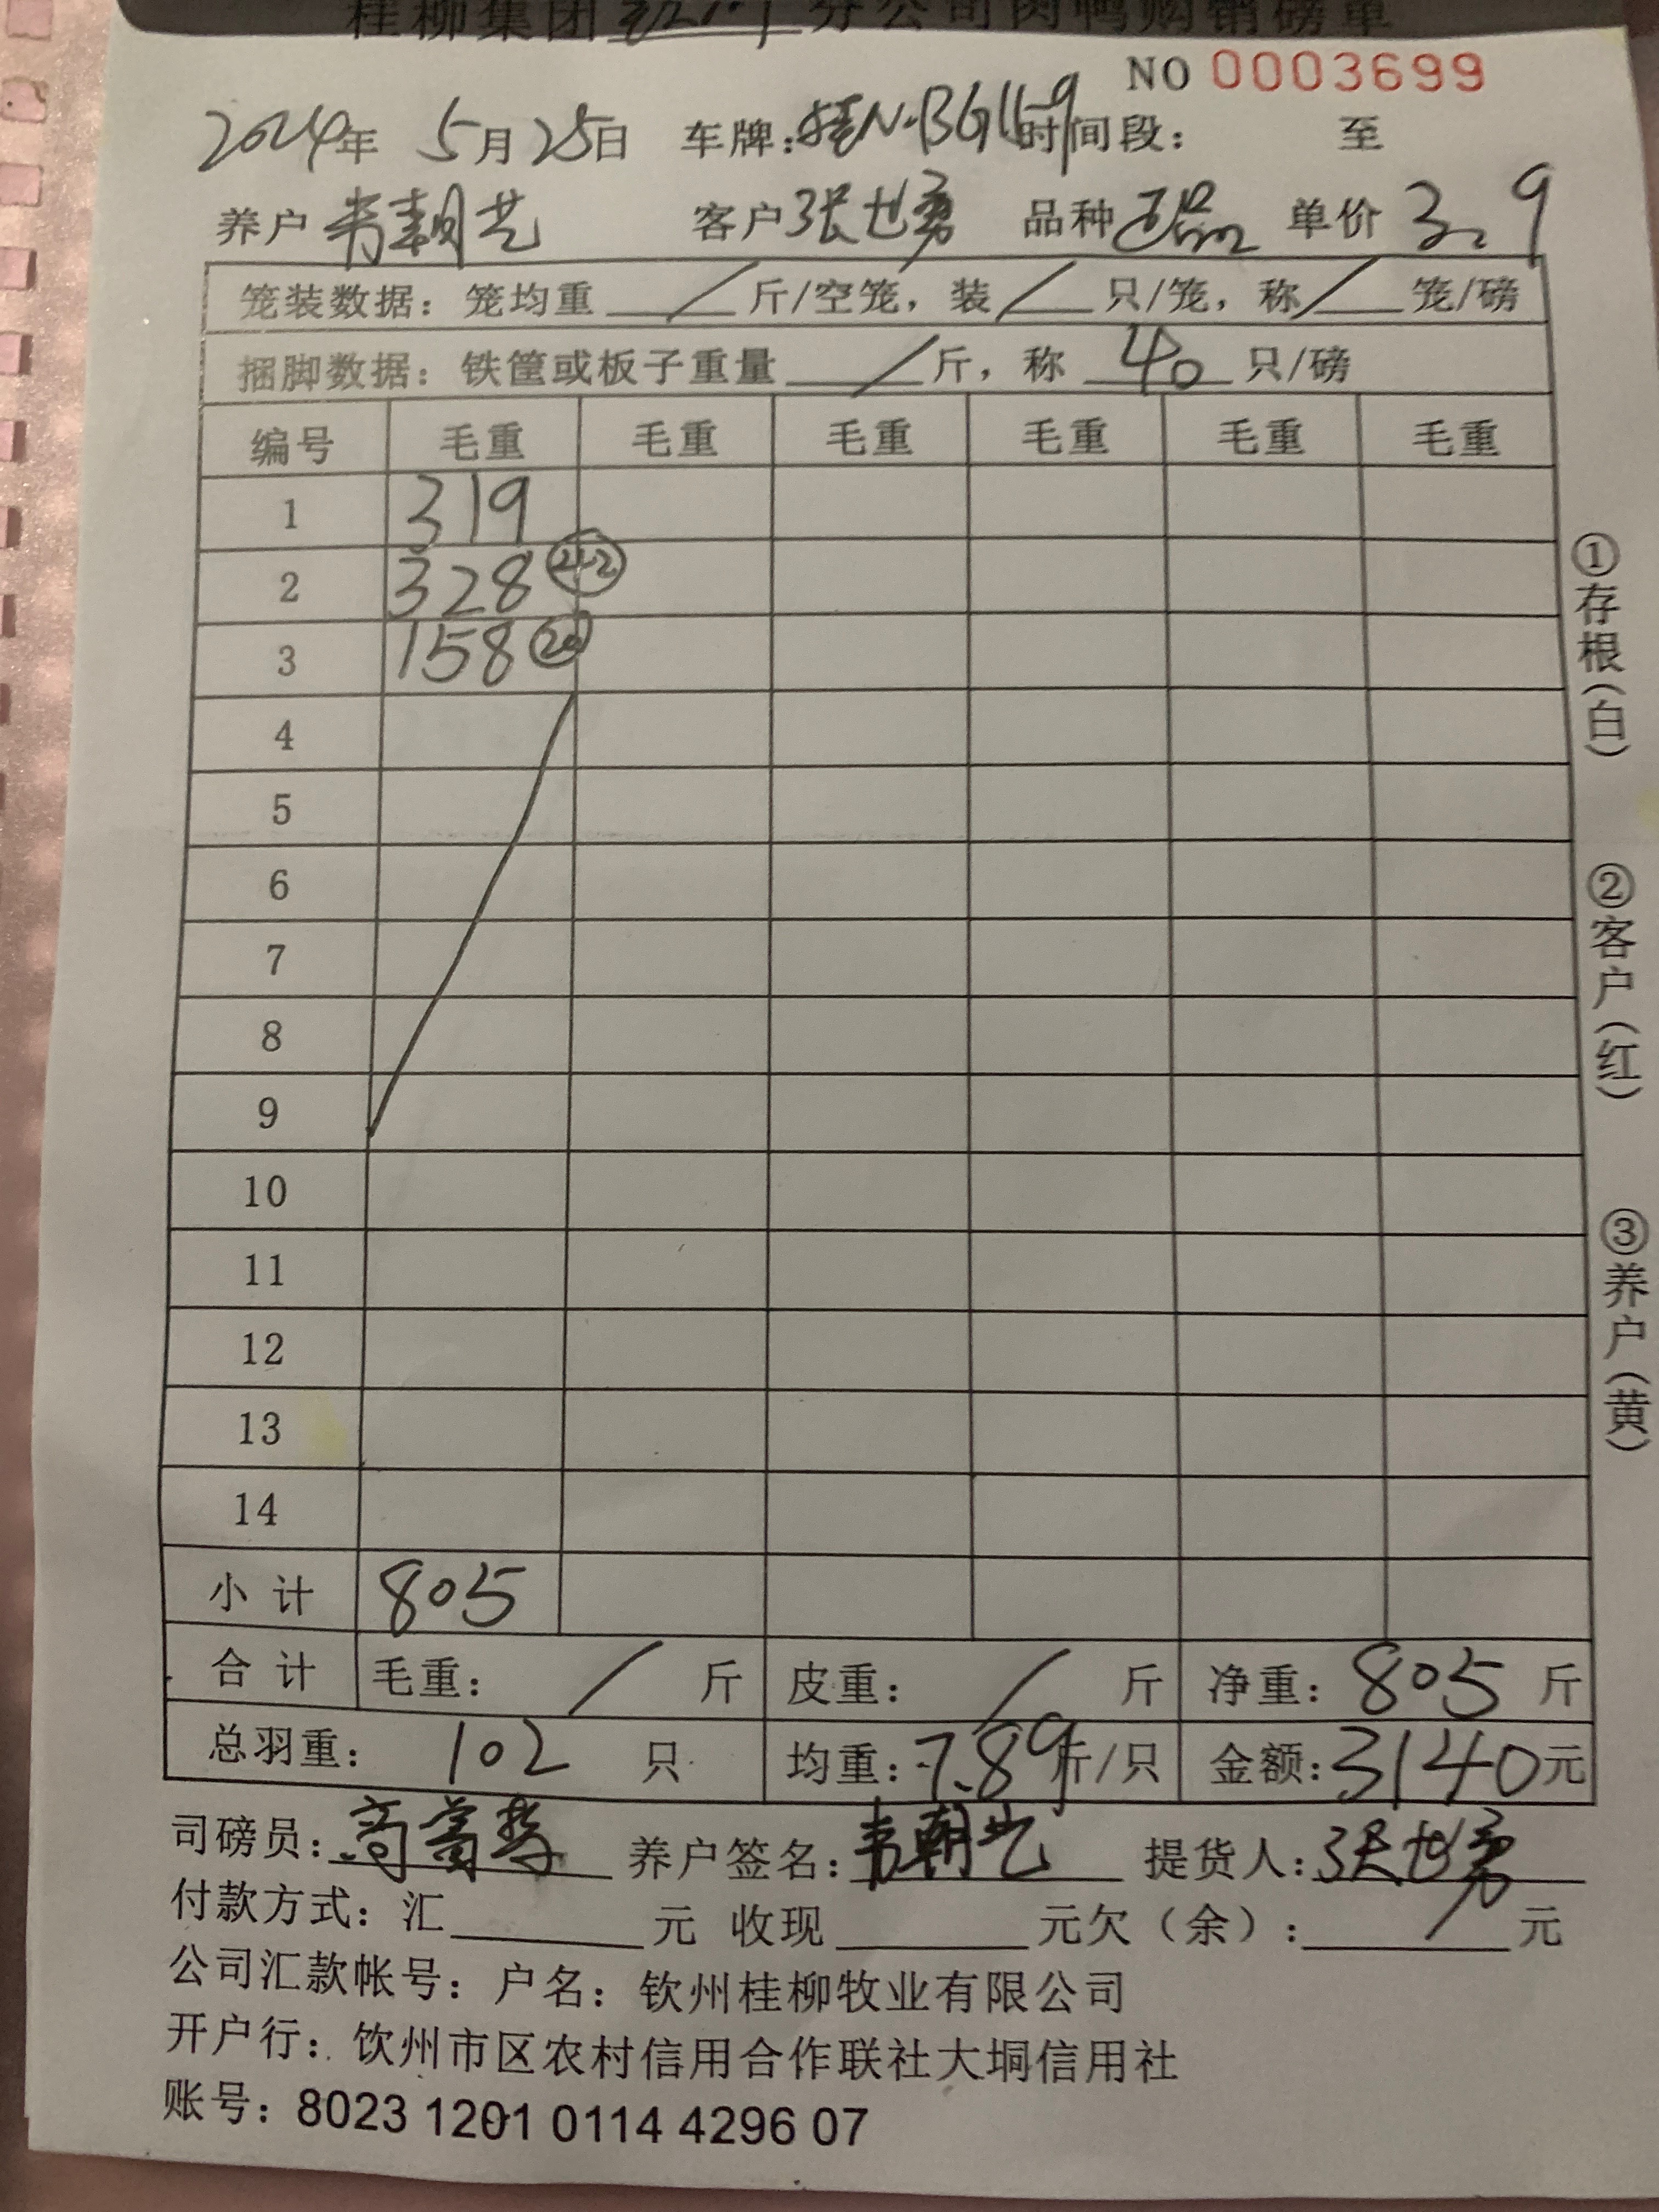 桂柳集团 分公司肉鸭购销磅单
NO 0003699
2024年 5月25日 车牌:桂N·BG1159 时间段: 至
养户 韦朝艺 客户 张世勇 品种 正品 单价 3.9
笼装数据: 笼均重 / 斤/空笼, 装 / 只/笼, 称 / 笼/磅
捆脚数据: 铁筐或板子重量 / 斤, 称 40 只/磅
编号 毛重 毛重 毛重 毛重 毛重 毛重
1 319
2 328
3 158 20
4
5
6
7
8
9
10
11
12
13
14
小 计 805
合 计 毛重: / 斤 皮重: / 斤 净重: 805 斤
总羽重: 102 只 均重: 7.89 斤/只 金额: 3140 元
司磅员: 养户签名: 韦朝艺 提货人: 张世勇
付款方式: 汇 元 收现 元欠(余): / 元
公司汇款帐号: 户名: 钦州桂柳牧业有限公司
开户行: 饮州市区农村信用合作联社大垌信用社
账号: 8023 1201 0114 4296 07
①存根(白)
②客户(红)
③养户(黄)